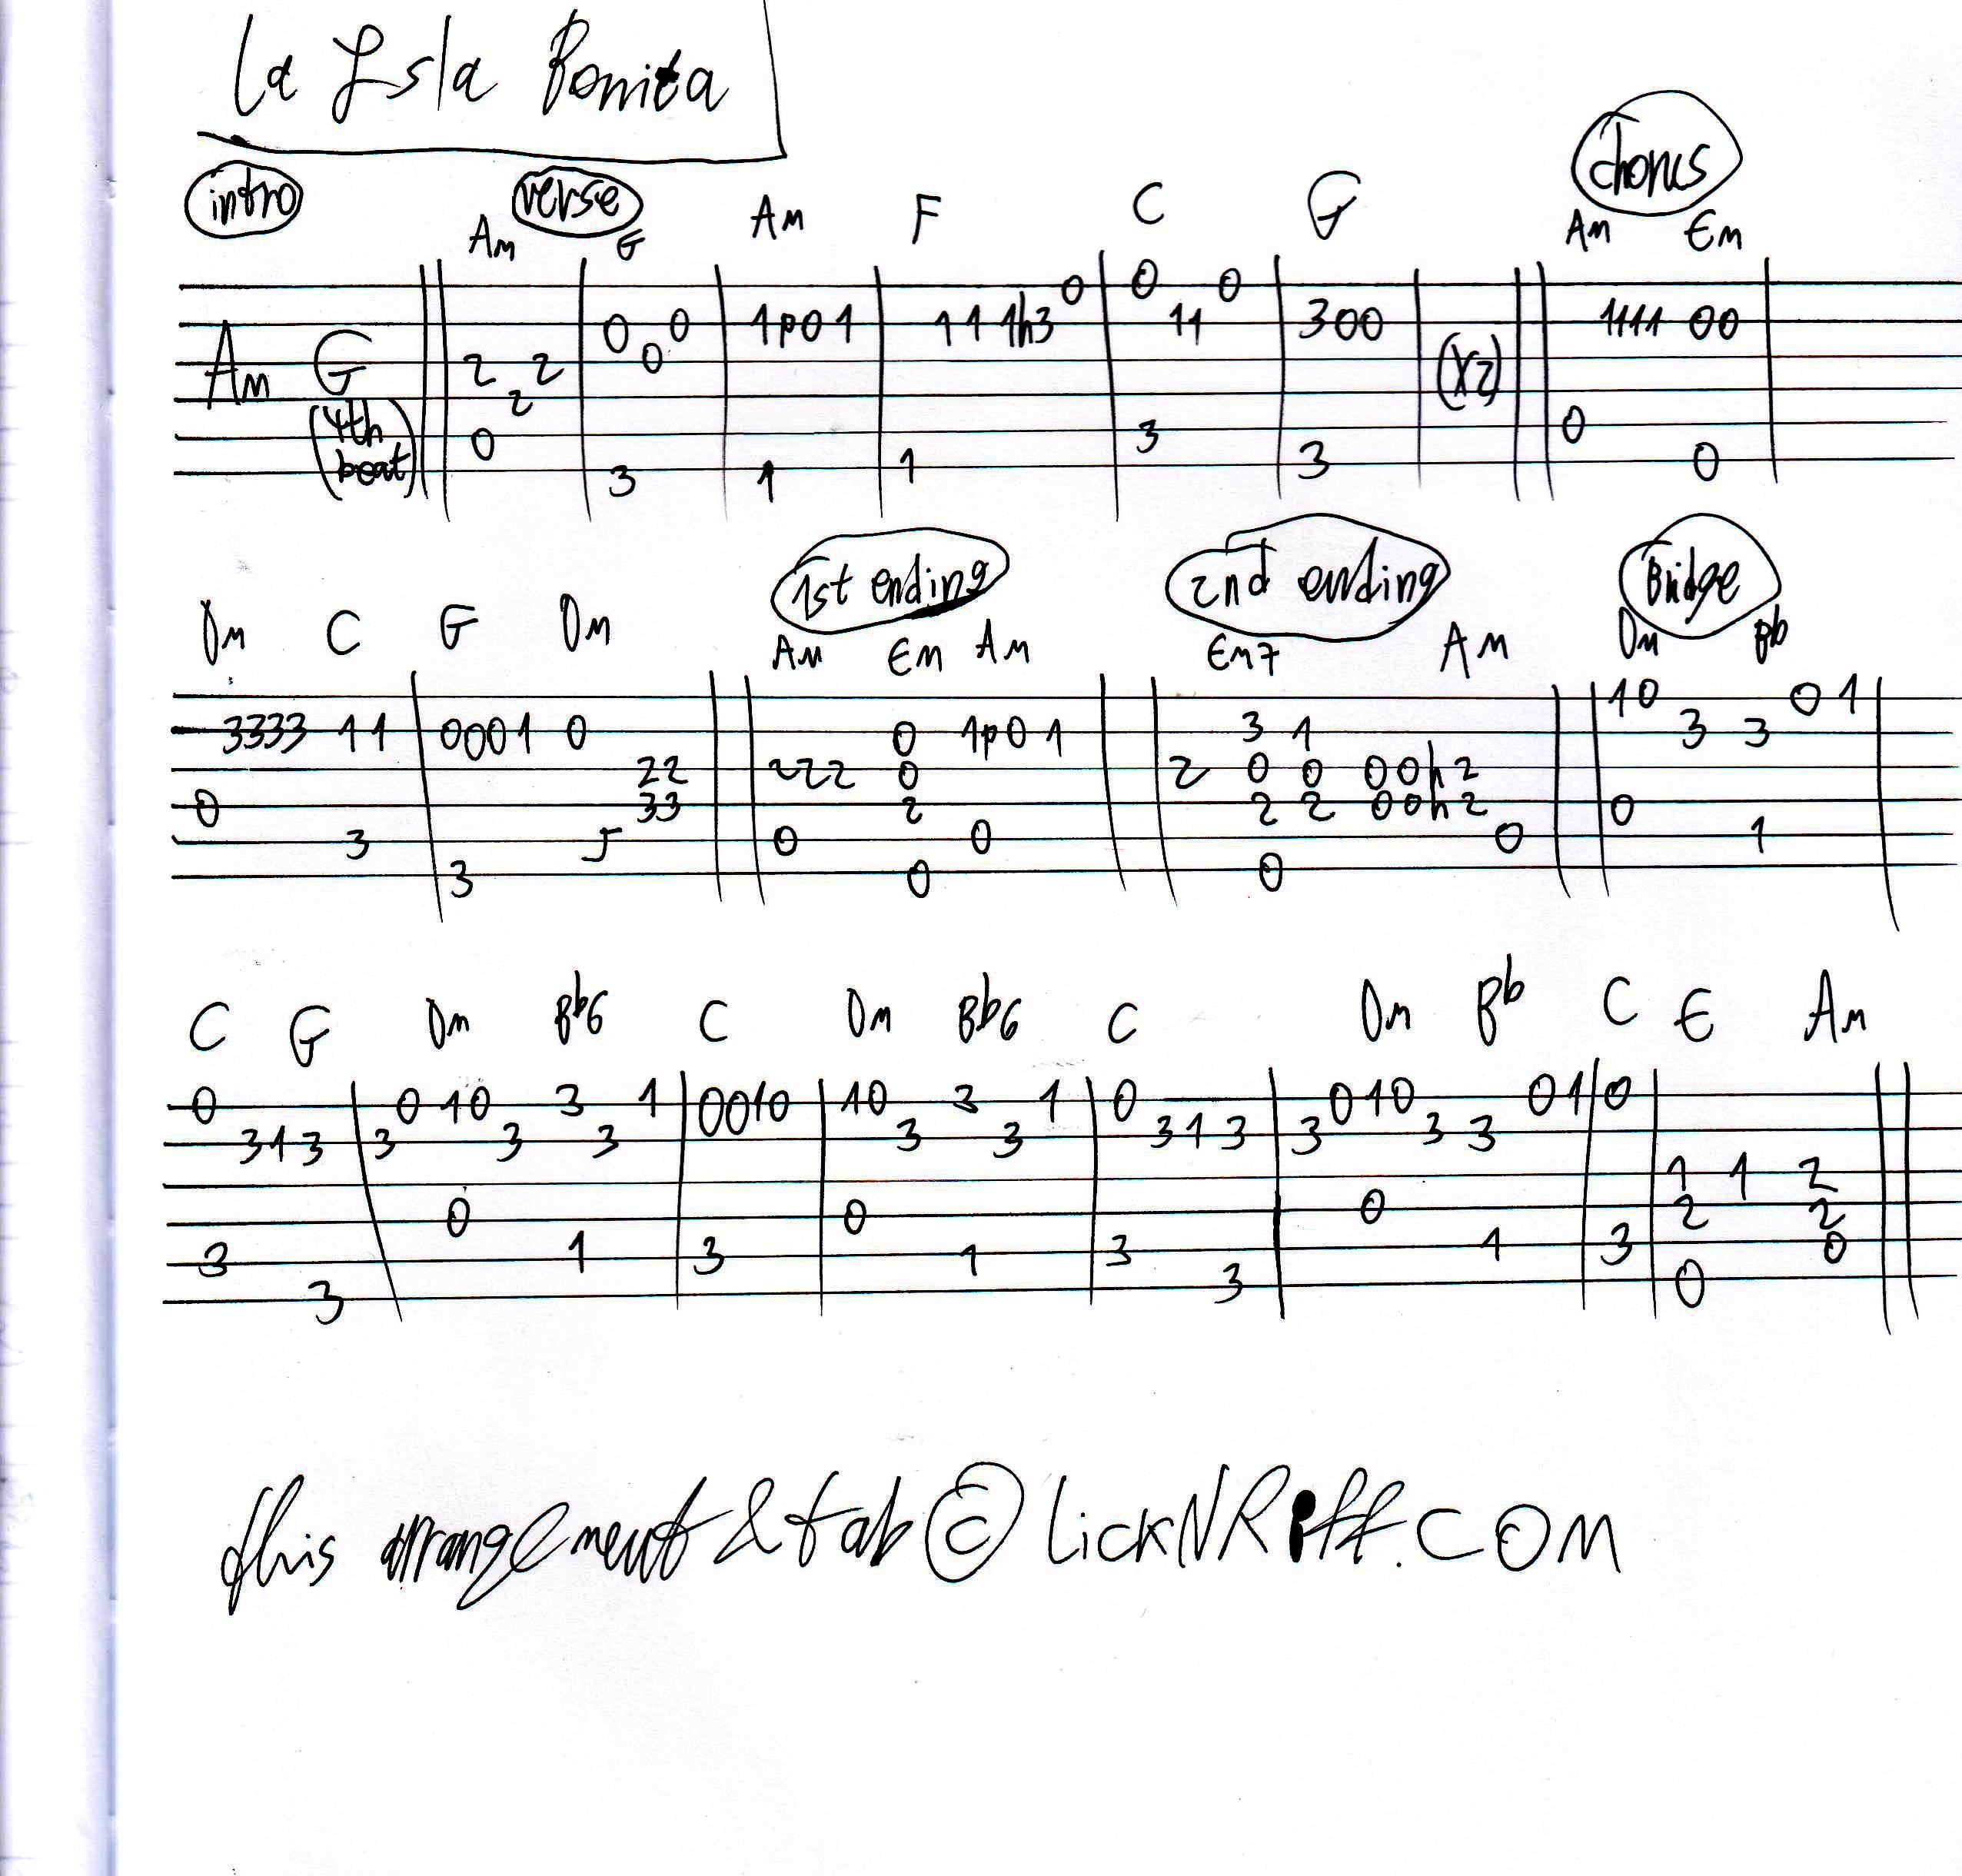 La Isla Bonita
intro verse chorus
Am G Am F C G Am Em
0 0 0
0 0 1p01 1 1 1h3 11 300 1111 00
Am G 2 2 0 (x2)
(4th beat) 2
0 3 0
3 1 1 3 0
1st ending 2nd ending Bridge
Dm C G Dm Am Em Am Em7 Am Dm Bb
10 0 1
3333 11 0001 0 0 1p01 3 1 3 3
22 222 0 2 0 0 00h2
0 33 2 2 2 00h2 0
3 5 0 0 0 1
3 0 0
C G Dm Bb6 C Dm Bb6 C Dm Bb C E Am
0 0 10 3 1 0010 10 3 1 0 010 01 0
313 3 3 3 3 3 313 3 3 3
1 1 2
0 0 0 2 2
3 1 3 1 3 1 3 0
3 3 0
this arrangement & tab © LickNRiff.com